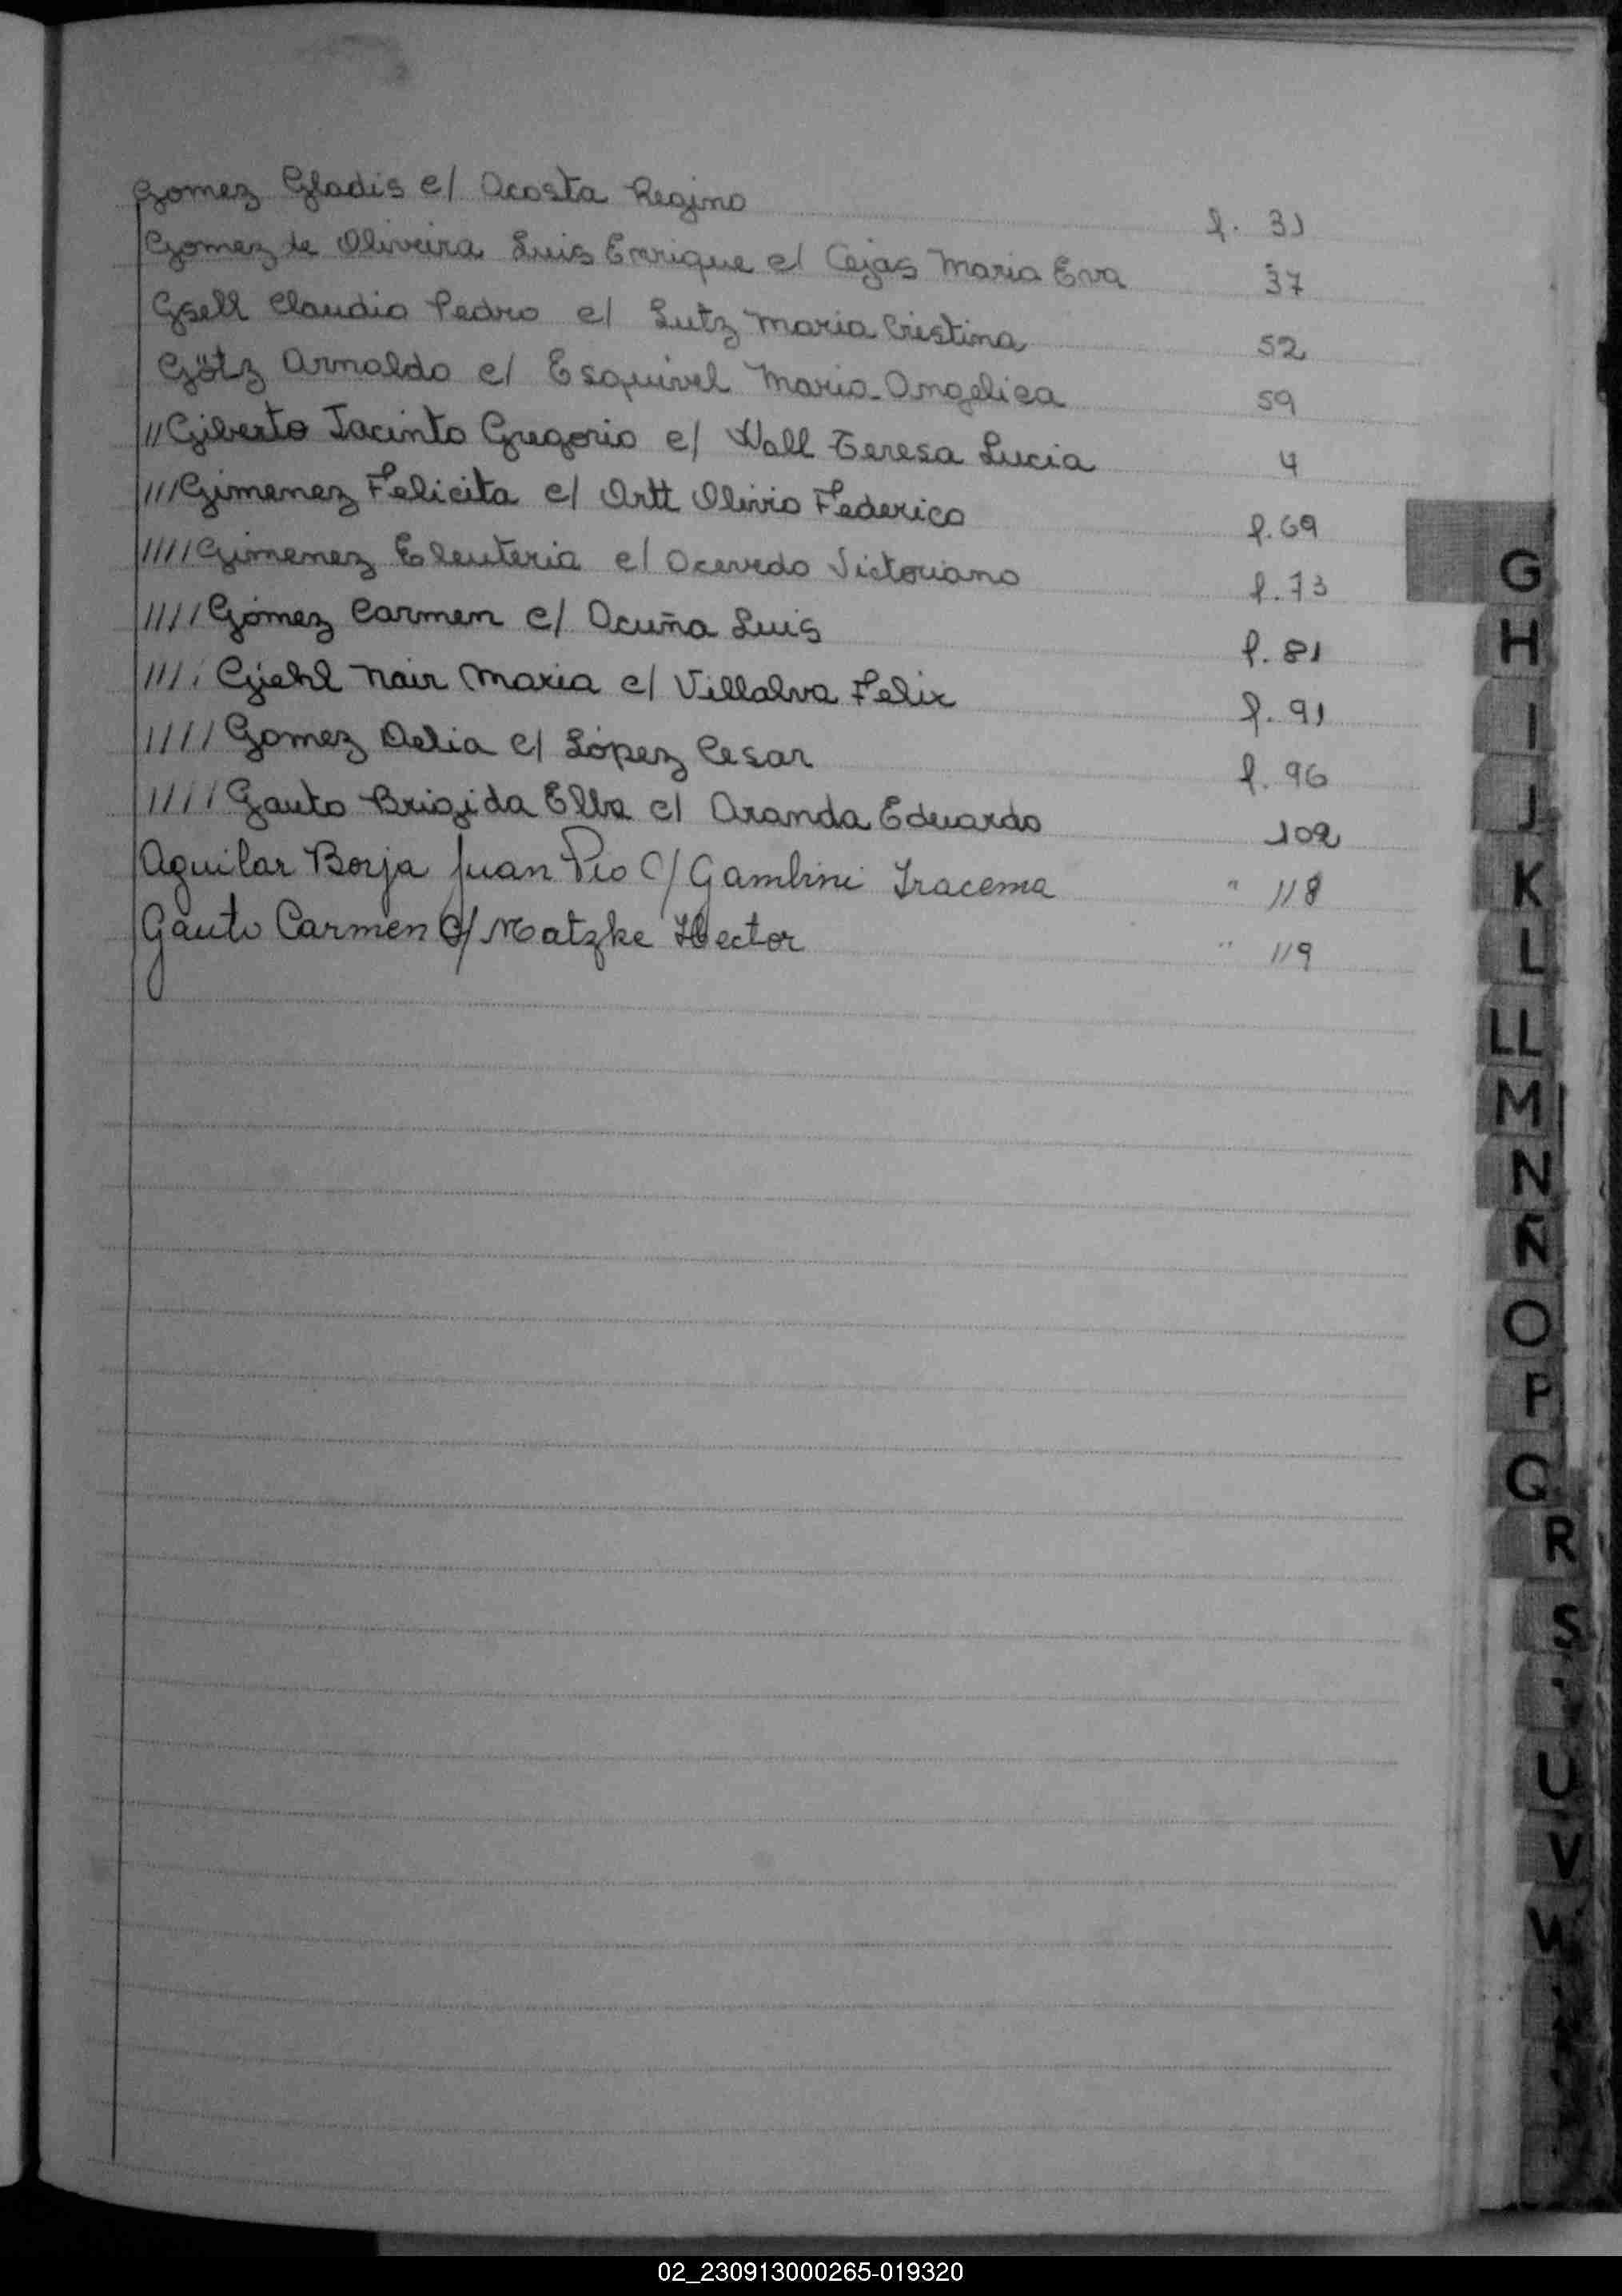 Gomez Gladis c/ Acosta Regino f. 31
Gomez de Oliveira Luis Enrique c/ Cejas Maria Eva 37
Gsell Claudio Pedro c/ Lutz Maria Cristina 52
Götz Arnaldo c/ Esquivel Maria Angelica 59
//Giberto Jacinto Gregorio c/ Wall Teresa Lucia 4
///Gimenez Felicita c/ Artt Olivio Federico f. 69
////Gimenez Eleuteria c/ Acevedo Victoriano f. 73
////Gómez Carmen c/ Acuña Luis f. 81
//// Giehl Nair Maria c/ Villalva Felix f. 91
////Gomez Delia c/ López Cesar f. 96
////Gauto Brigida Elba c/ Aranda Eduardo 102
Aguilar Borja Juan Pio C/ Gambini Iracema " 118
Gauto Carmen C/ Matzke Hector " 119
G
H
I
J
K
L
LL
M
N
Ñ
O
P
Q
R
S
U
V
02_230913000265-019320